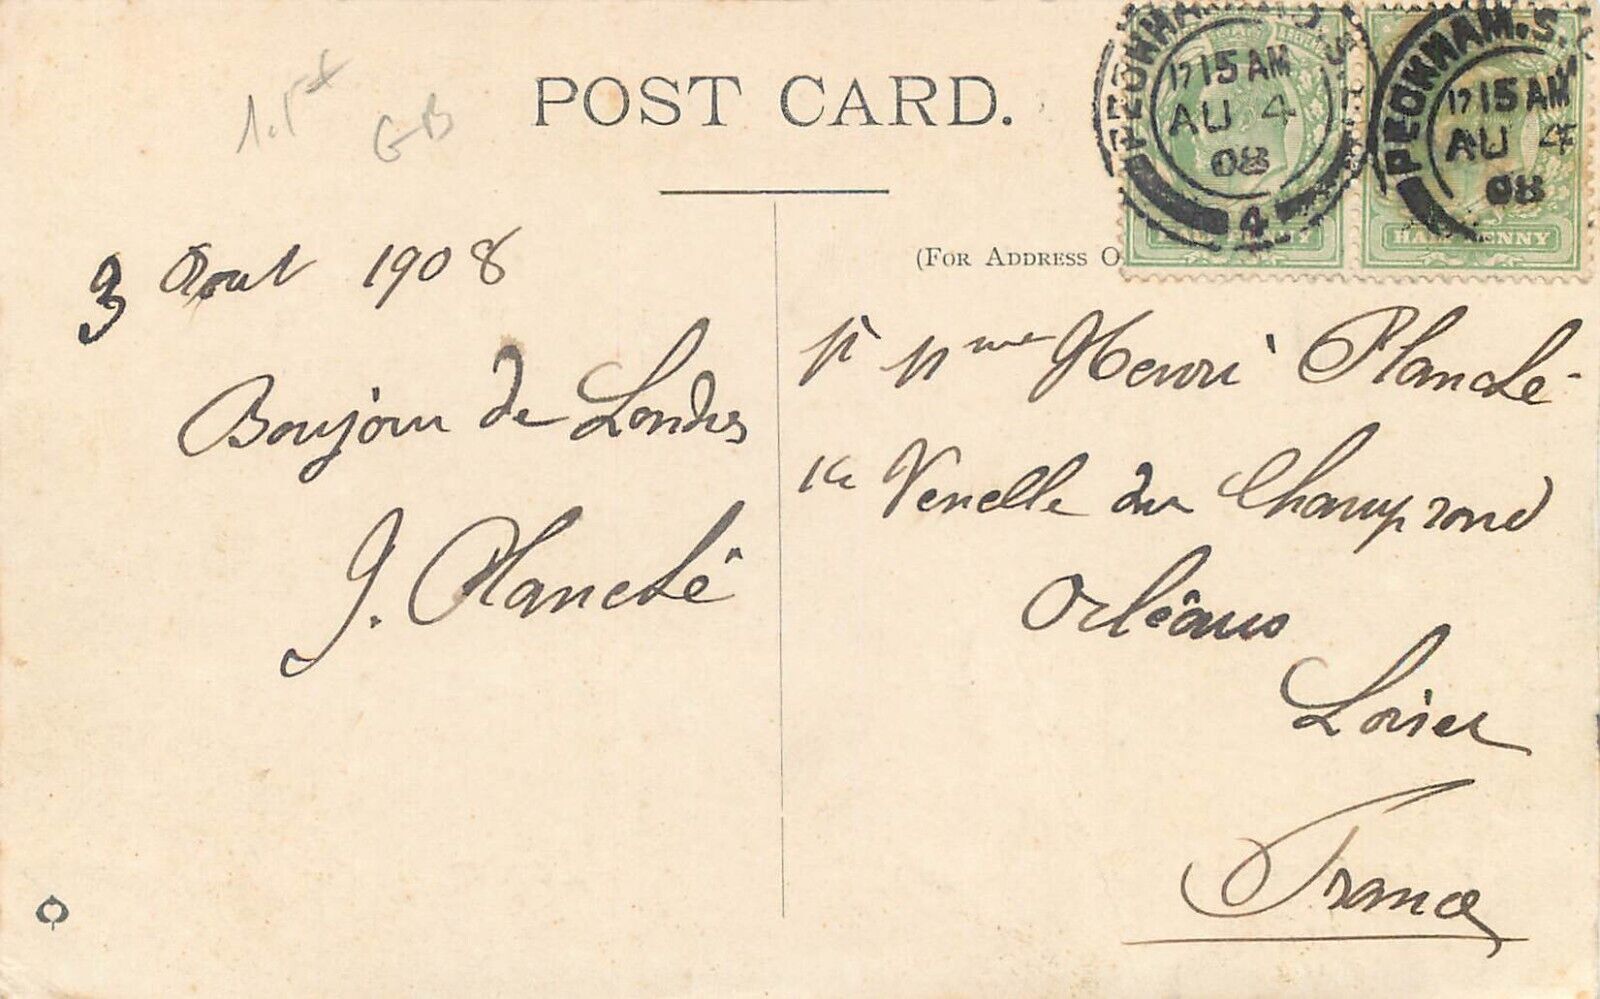 POST CARD.
1.5 €
GB
PECKHAM. S.
15 AM
AU 4
08
4
HALFPENNY
PECKHAM. S.
15 AM
AU 4
08
HALFPENNY
(FOR ADDRESS O
3 Aout 1908
Bonjour de Londres
J. Planché
Mme Henri Planché
Venelle du Champ rond
Orléans
Loiret
France